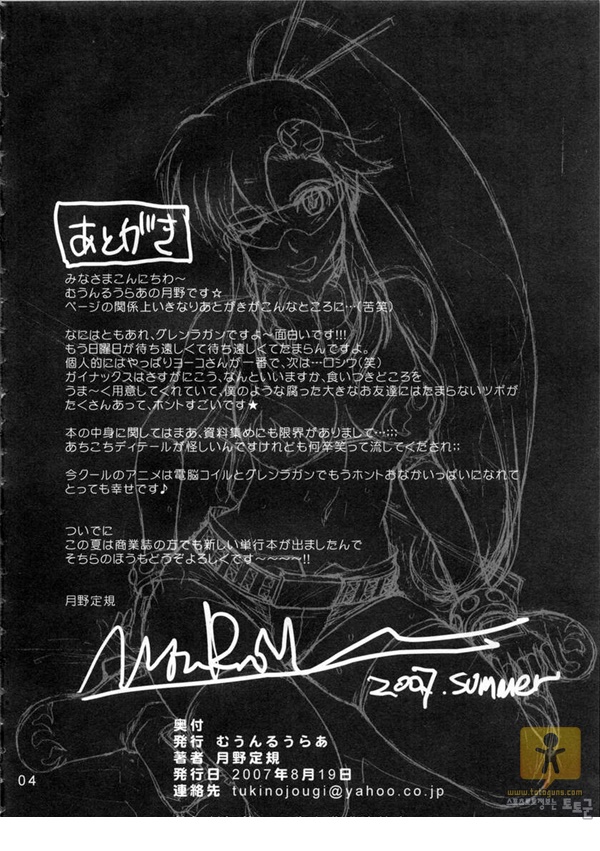 あとがき
みなさまこんにちわ～
むうんるうらあの月野です☆
ページの関係上いきなりあとがきがこんなところに…(苦笑)
なにはともあれ、グレンラガンですよ～面白いです!!!
もう日曜日が待ち遠しくて待ち遠しくてたまらんですよ。
個人的にはやっぱりヨーコさんが一番で、次は…ロシウ(笑)
ガイナックスはさすがにこう、なんといいますか、食いつきどころを
うま～く用意してくれていて、僕のような腐った大きなお友達にはたまらないツボが
たくさんあって、ホントすごいです★
本の中身に関してはまあ、資料集めにも限界がありまして…;;;
あちこちディテールが怪しいんですけれども何卒笑って流してくだされ;;
今クールのアニメは電脳コイルとグレンラガンでもうホントおなかいっぱいになれて
とっても幸せです♪
ついでに
この夏は商業誌の方でも新しい単行本が出ましたんで
そちらのほうもどうぞよろしくです～～～～!!
月野定規
2007.summer
奥付
発行 むうんるうらあ
著者 月野定規
発行日 2007年8月19日
連絡先 tukinojougi@yahoo.co.jp
04
www.totoguns.com
스포츠토토정보는 토토군